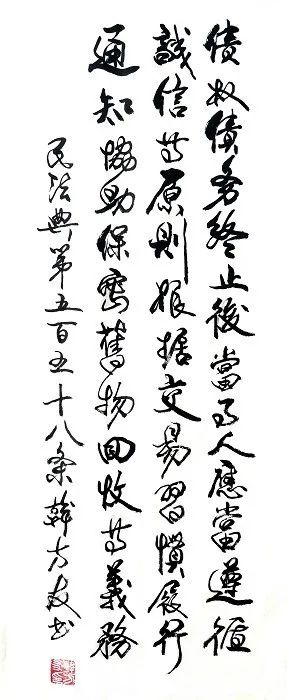 债权债务终止後當事人應當遵循
誠信等原則根据交易習慣履行
通知協助保密舊物回收等義務
民法典第五百五十八条韓方友书